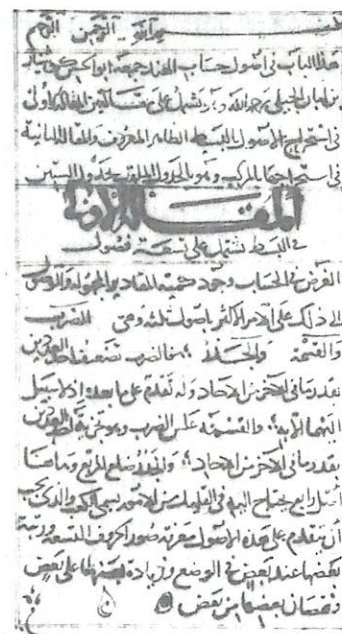 بسم الله الرحمن الرحيم
هذا الكتاب في اصول حساب الهند جمعه ابو الحسن كوشيار
بن لبان الجيلي رحمه الله ويشتمل على مقالتين المقالة الاولى
في استخراج الاصول بالبسيط الظاهر المعروف والمقالة الثانية
في استخراجها المركب وهو بالجدول الملقب بجدول الستين
المقالة الاولى
في البسيط تشتمل على تسعة فصول
الغرض في الحساب وجود كمية المقادير المجهولة والوصول
الى ذلك على الامر الاكثر باصول ثلثة وهي الضرب
والقسمة والجذر فالضرب تضعيف احد العددين
بقدر ما في الآخر من الآحاد وله تقدم على ما بعده اذ لا سبيل
اليهما الا به والقسمة عكس الضرب وهو تجزية احد العددين
بقدر ما في الآخر من الآحاد والجذر ضلع المربع وهاهنا
اصل رابع يحتاج اليه في القليل من الامور يسمى الكعب والذي يجب
ان نقدم على هذه الاصول معرفة صور الحروف التسعة ورتبة
بعضها عند بعض في الوضع وزيادة بعضها على بعض
ونقصان بعضها من بعض